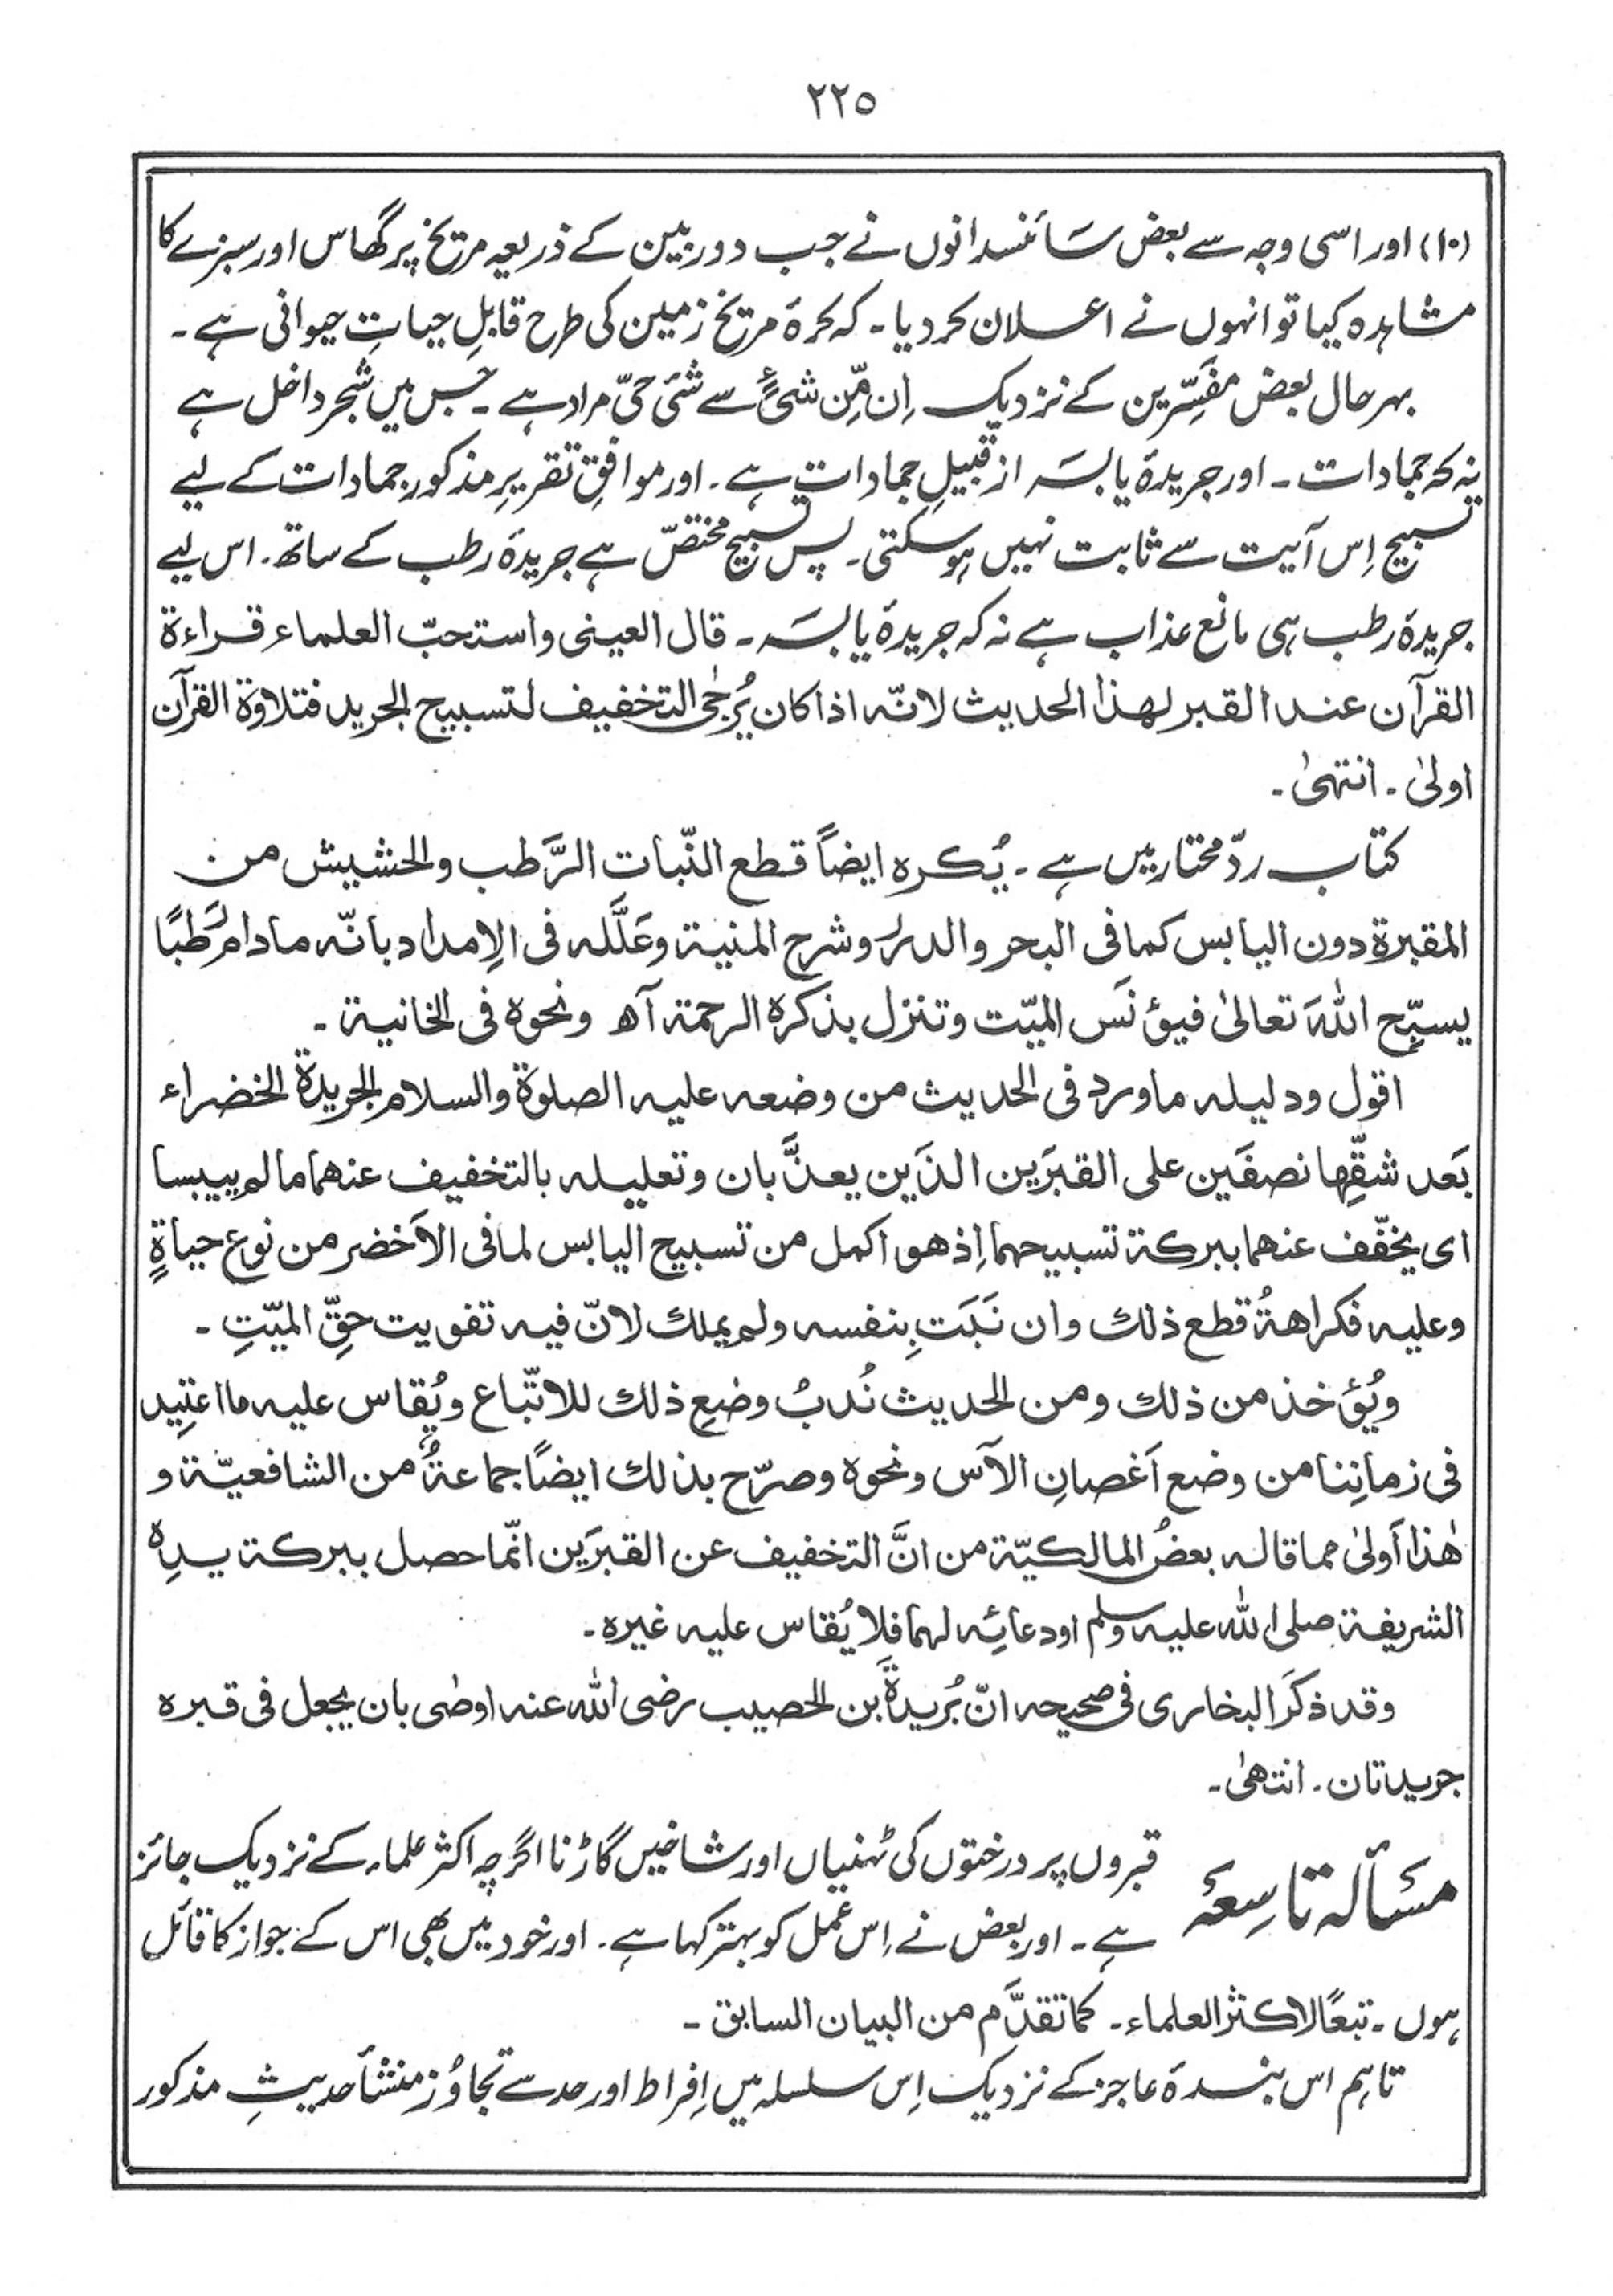 ٢٢٥
(١٠) اور اسی وجہ سے بعض سائنسدانوں نے جب دوربین کے ذریعہ مریخ پر گھاس اور سبزے کا
مشاہدہ کیا تو انہوں نے اعلان کردیا۔ کہ کرۂ مریخ زمین کی طرح قابلِ حیاتِ حیوانی ہے۔
بہرحال بعض مفسِّرین کے نزدیک اِن مِّن شیءٍ سے شئ حیّ مراد ہے۔ جس میں شجر داخل ہے
نہ کہ جمادات۔ اور جریدۂ یابسہ از قبیلِ جمادات ہے۔ اور موافقِ تقریرِ مذکور جمادات کے لیے
تسبیح اِس آیت سے ثابت نہیں ہوسکتی۔ پس تسبیح مختصّ ہے جریدۂ رطب کے ساتھ۔ اس لیے
جریدۂ رطب ہی مانع عذاب ہے نہ کہ جریدۂ یابسہ۔ قال العینی واستحبّ العلماء قراءة
القرآن عند القبر لهذا الحدیث لانّه اذا کان یُرجٰی التخفیف لتسبیح الجرید فتلاوة القرآن
اولیٰ۔ انتہیٰ۔
کتاب ردّ مختار میں ہے۔ یُکرہ ایضاً قطع النّبات الرَّطب والحشیش من
المقبرة دون الیابس کما فی البحر والدرر وشرح المنیة وعَلَّله فی الِامداد بانّه مادام رَطبًا
یسبِّح اللّٰهَ تعالیٰ فیؤنَس المیّت وتنزل بذکره الرحمة آھ ونحوه فی الخانیة۔
اقول ودلیله ماورد فی الحدیث من وضعه علیه الصلوة والسلام الجریدة الخضراء
بَعد شقِّها نصفَین علی القبرَین الذَین یعذَّبان وتعلیله بالتخفیف عنهما مالم ییبسا
ای یخفّف عنهما ببرکة تسبیحهما اِذ هو اکمل من تسبیح الیابس لما فی الاَخضر من نوع حیاةٍ
وعلیه فکراهةُ قطع ذلك وان نَبَتَ بِنفسه ولم یملك لانّ فیه تفویت حقِّ المیّتِ۔
ویُؤخذ من ذلك ومن الحدیث نُدبُ وضعِ ذلك للاتّباع ویُقاس علیه ما اعتِید
فی زمانِنا من وضع اَغصانِ الآس ونحوه وصرّح بذلك ایضًا جماعةٌ من الشافعیّة و
هٰذا اَولیٰ مما قاله بعضُ المالکیّة من انَّ التخفیف عن القبرَین انّما حصل ببرکة یدِه
الشریفة صلی اللّٰه علیه وسلم او دعائِه لهما فلا یُقاس علیه غیره۔
وقد ذکَر البخاری فی صحیحه انّ بُریدةَ بن الحصیب رضی اللّٰه عنه اوصٰی بان یجعل فی قبره
جریدتان۔ انتهیٰ۔
مسألہ تاسِعہ قبروں پر درختوں کی ٹہنیاں اور شاخیں گاڑنا اگرچہ اکثر علماء کے نزدیک جائز
ہے۔ اور بعض نے اِس عمل کو بہتر کہا ہے۔ اور خود میں بھی اس کے جواز کا قائل
ہوں۔ تبعًا لاکثر العلماء۔ کما تقدَّم من البیان السابق۔
تاہم اس بندۂ عاجز کے نزدیک اِس سلسلہ میں اِفراط اور حد سے تجاوُز منشأ حدیثِ مذکور